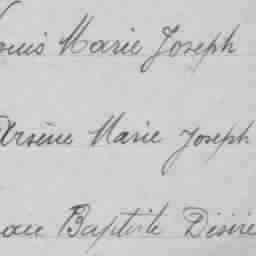 Louis Marie Joseph
Arsène Marie Joseph
Baptiste Désiré